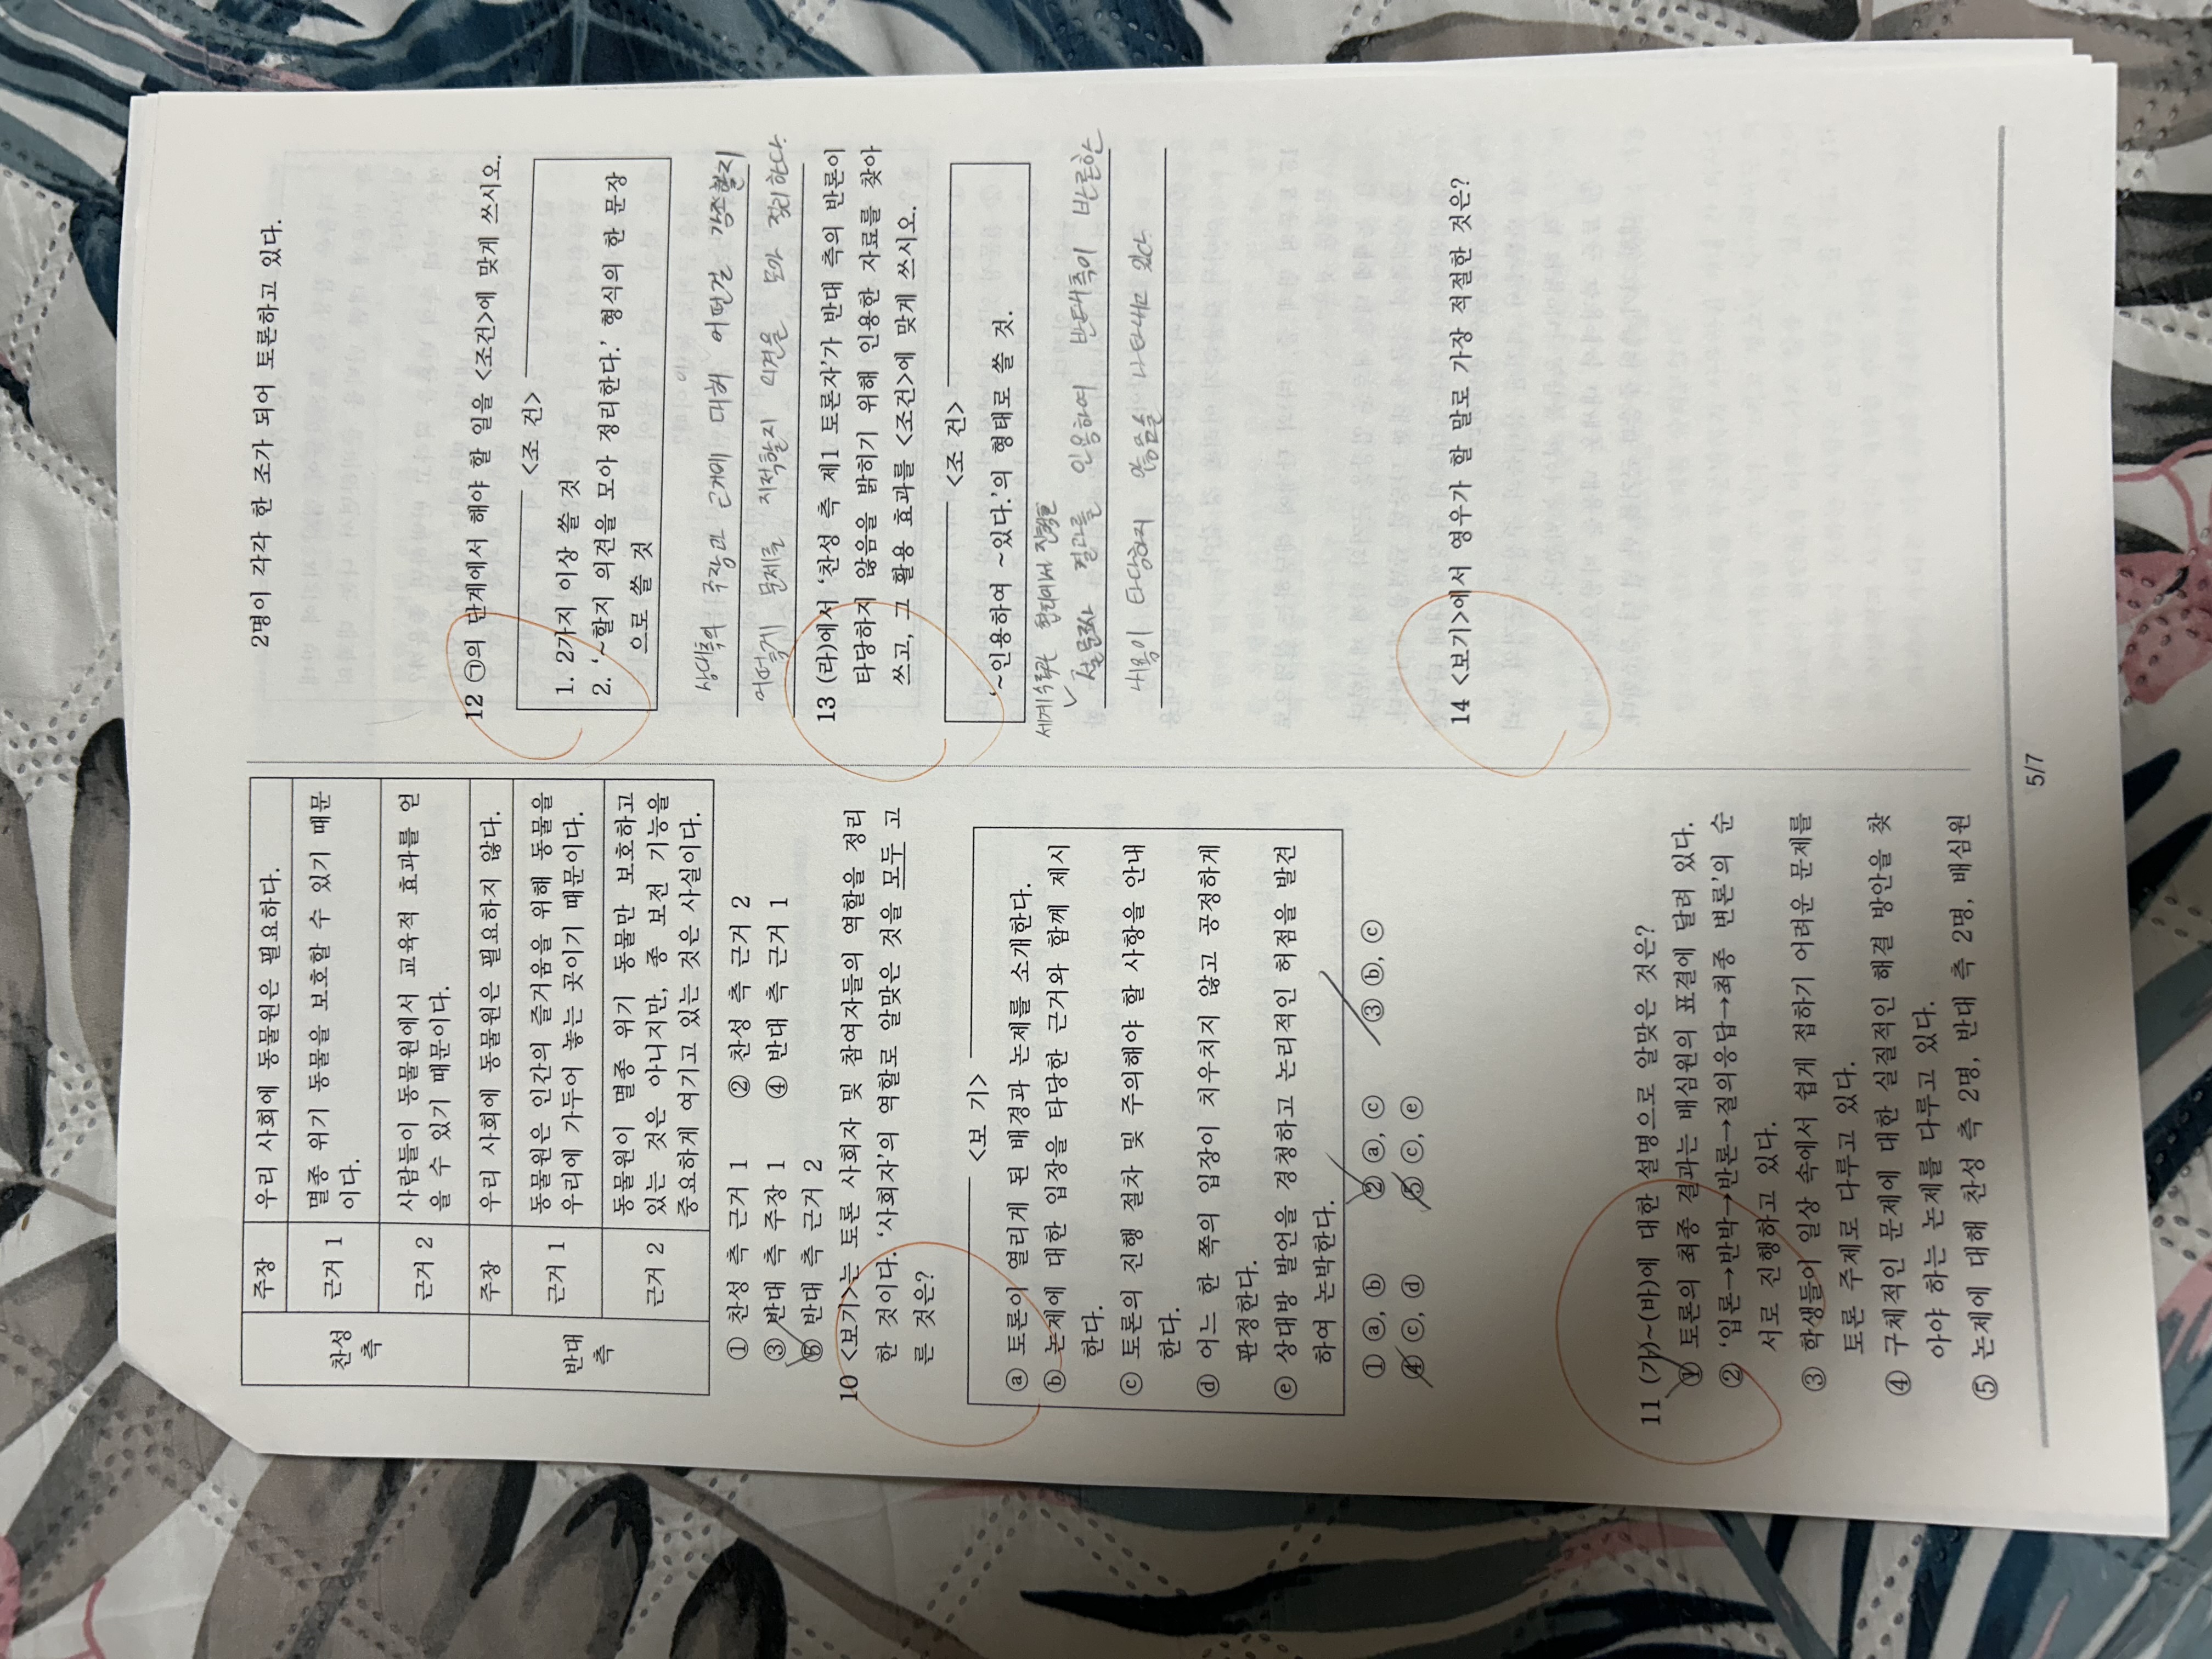 찬성 측
주장
우리 사회에 동물원은 필요하다.
근거 1
멸종 위기 동물을 보호할 수 있기 때문
이다.
근거 2
사람들이 동물원에서 교육적 효과를 얻
을 수 있기 때문이다.
반대 측
주장
우리 사회에 동물원은 필요하지 않다.
근거 1
동물원은 인간의 즐거움을 위해 동물을
우리에 가두어 놓는 곳이기 때문이다.
근거 2
동물원이 멸종 위기 동물만 보호하고
있는 것은 아니지만, 종 보전 기능을
중요하게 여기고 있는 것은 사실이다.
① 찬성 측 근거 1 ② 찬성 측 근거 2
③ 반대 측 주장 1 ④ 반대 측 근거 1
⑤ 반대 측 근거 2
10 <보기>는 토론 사회자 및 참여자들의 역할을 정리
한 것이다. ‘사회자’의 역할로 알맞은 것을 모두 고
른 것은?
<보 기>
ⓐ 토론이 열리게 된 배경과 논제를 소개한다.
ⓑ 논제에 대한 입장을 타당한 근거와 함께 제시
한다.
ⓒ 토론의 진행 절차 및 주의해야 할 사항을 안내
한다.
ⓓ 어느 한 쪽의 입장이 치우치지 않고 공정하게
판정한다.
ⓔ 상대방 발언을 경청하고 논리적인 허점을 발견
하여 논박한다.
① ⓐ, ⓑ ② ⓐ, ⓒ ③ ⓑ, ⓒ
④ ⓒ, ⓓ ⑤ ⓒ, ⓔ
11 (가)~(바)에 대한 설명으로 알맞은 것은?
① 토론의 최종 결과는 배심원의 표결에 달려 있다.
② ‘입론→반박→반론→질의응답→최종 변론’의 순
서로 진행하고 있다.
③ 학생들이 일상 속에서 쉽게 접하기 어려운 문제를
토론 주제로 다루고 있다.
④ 구체적인 문제에 대한 실질적인 해결 방안을 찾
아야 하는 논제를 다루고 있다.
⑤ 논제에 대해 찬성 측 2명, 반대 측 2명, 배심원
2명이 각각 한 조가 되어 토론하고 있다.
12 ㉠의 단계에서 해야 할 일을 <조건>에 맞게 쓰시오.
<조 건>
1. 2가지 이상 쓸 것
2. ‘~할지 의견을 모아 정리한다.’ 형식의 한 문장
으로 쓸 것
상대측의 주장과 근거에 대해 어떤걸 강조할지
어떻게 문제를 지적할지 의견을 모아 정리한다.
13 (라)에서 ‘찬성 측 제1 토론자’가 반대 측의 반론이
타당하지 않음을 밝히기 위해 인용한 자료를 찾아
쓰고, 그 활용 효과를 <조건>에 맞게 쓰시오.
<조 건>
‘~인용하여 ~있다.’의 형태로 쓸 것.
세계 수족관 협회에서 진행한
설문조사 결과를 인용하여 반대측이 반론한
내용이 타당하지 않음을 나타내고 있다.
14 <보기>에서 영우가 할 말로 가장 적절한 것은?
5/7